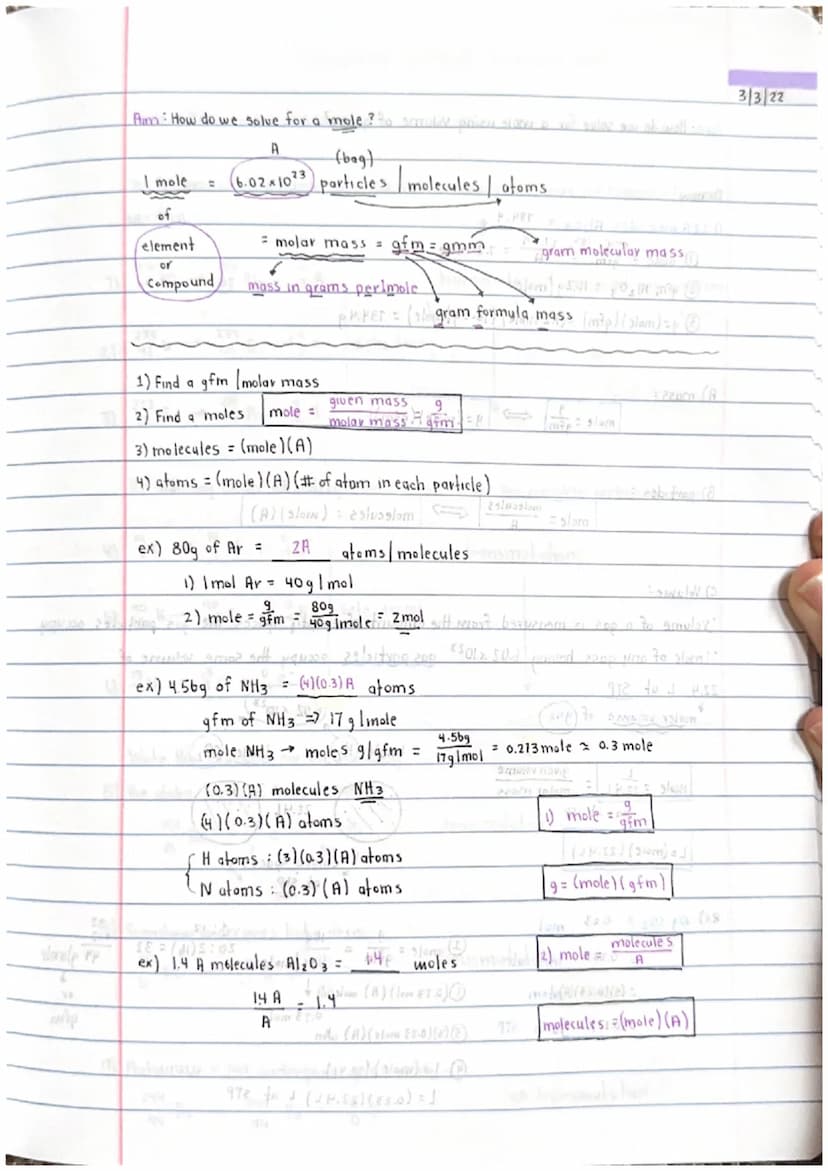 3/3/22
Aim: How do we solve for a mole?
A
(bag)
1 mole = 6.02 x 10^23 particles / molecules / atoms
of
element or compound
= molar mass = gfm = gmm
gram molecular mass
mass in grams per 1mole
gram formula mass
1) Find a gfm / molar mass
2) Find a moles mole = given mass / molar mass = g / gfm
3) molecules = (mole)(A)
4) atoms = (mole)(A)(# of atom in each particle)
ex) 80g of Ar = 2A atoms / molecules
1) 1 mol Ar = 40 g / mol
2) mole = g / gfm = 80g / 40g/mole = 2mol
ex) 4.56g of NH3 = (4)(0.3)A atoms
gfm of NH3 => 17 g/mole
mole NH3 → moles g/gfm = 4.56g / 17g/mol = 0.273 mole ≈ 0.3 mole
(0.3)(A) molecules NH3
(4)(0.3)(A) atoms
1) mole = g / gfm
H atoms : (3)(0.3)(A) atoms
N atoms : (0.3)(A) atoms
g = (mole)(gfm)
ex) 1.4 A molecules Al2O3 = 1.4 moles
2) mole = molecules / A
1.4 A / A = 1.4
molecules = (mole)(A)